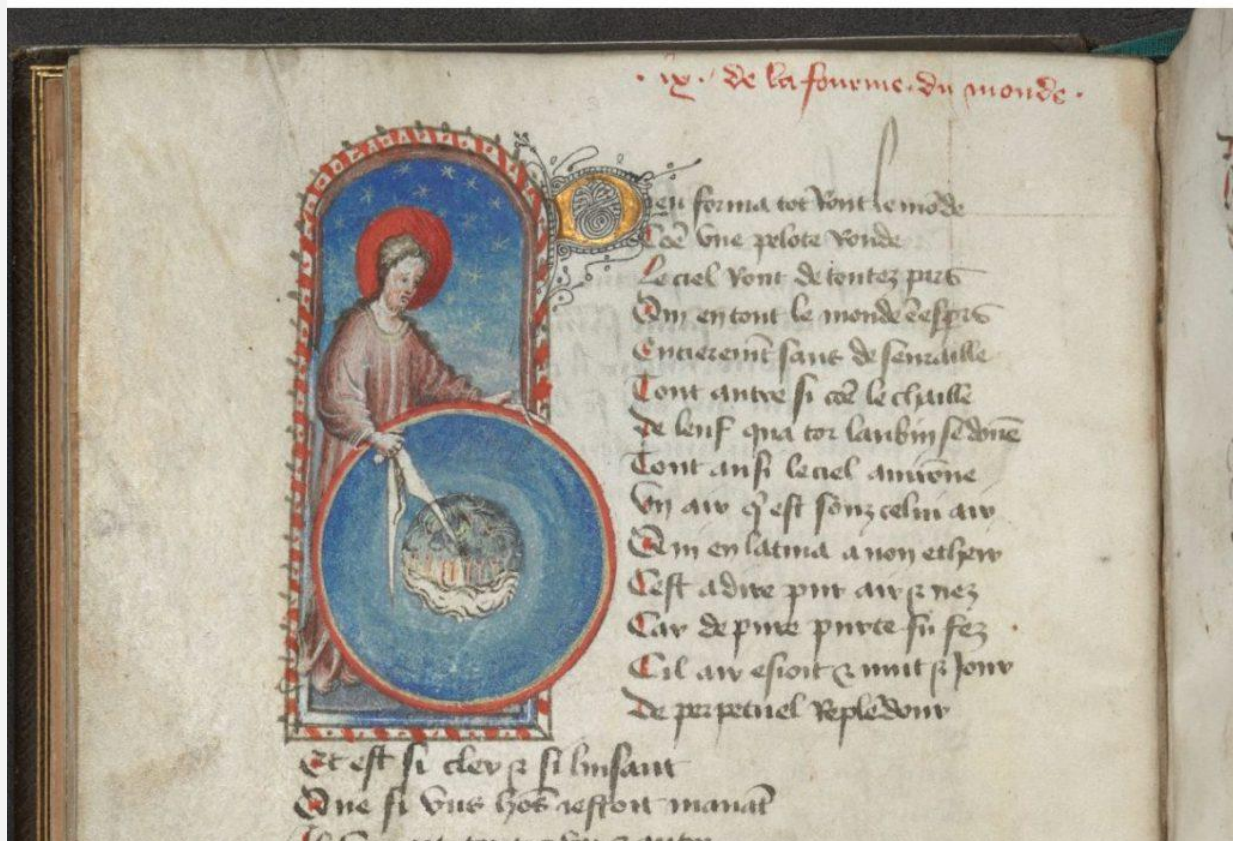 .ix. de la fourme du monde.
Deu forma tot ront le mōde
Cōe vne pelote ronde
Le ciel ront de toutez pars
Qui en tout le monde ē espars
Entieremt sans deseuraille
Tout autre si cōe le chaille
De leuf qua tor laubun se dōne
Tout ausi le ciel auirōne
Vn air qest souz celui air
Qui en latina a non etheir
Cest a dire pur air & nez
Car de pure purte fu fez
Cil air & nuit & Jour
De perpetuel Resplēdour
Et est si cler & si luisant
Que si vns hōs estoit manāt